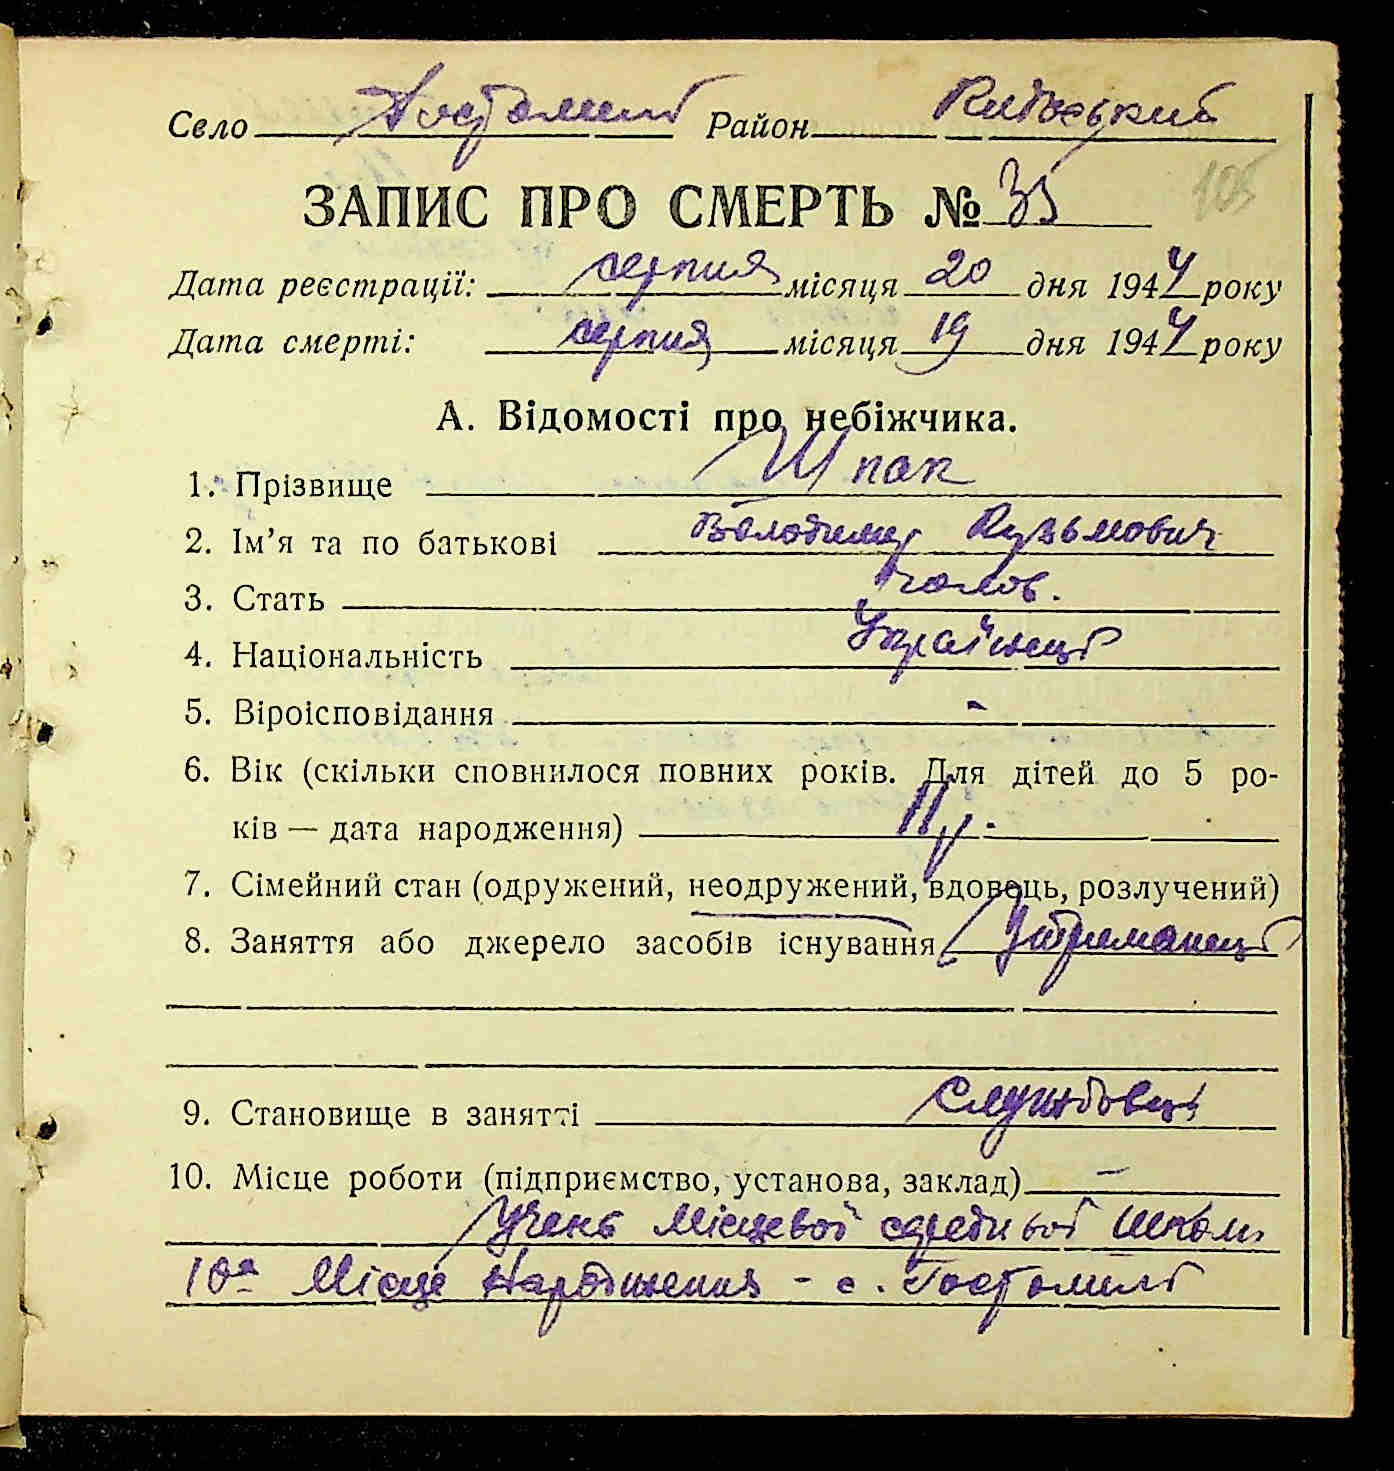 Село Гостомель Район Київський
ЗАПИС ПРО СМЕРТЬ № 35
105
Дата реєстрації: серпня місяця 20 дня 1944 року
Дата смерті: серпня місяця 19 дня 1944 року
А. Відомості про небіжчика.
1. Прізвище Шпак
2. Ім’я та по батькові Володимир Кузьмович
3. Стать чолов.
4. Національність Українець
5. Віроісповідання -
6. Вік (скільки сповнилося повних років. Для дітей до 5 ро-
ків — дата народження) 11 р.
7. Сімейний стан (одружений, неодружений, вдовець, розлучений)
8. Заняття або джерело засобів існування Утриманець
9. Становище в занятті Службовці
10. Місце роботи (підприємство, установа, заклад) —
Учень Місцевої середньої школи
10а Місце Народження - с. Гостомель